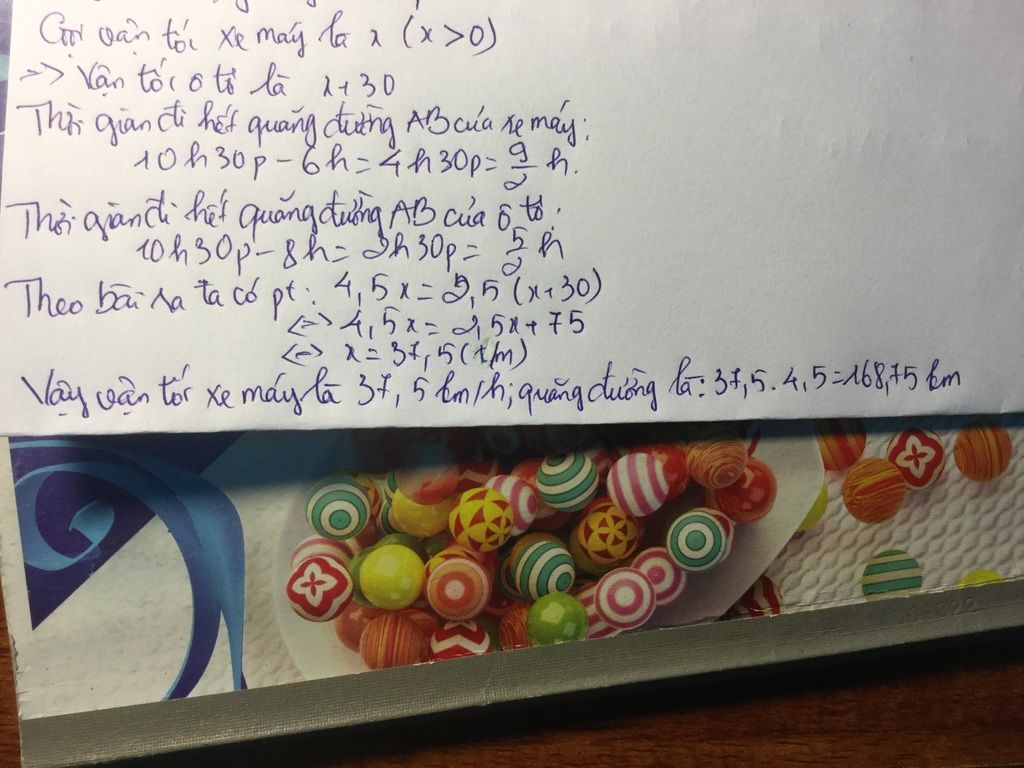 Gọi vận tốc xe máy là x (x>0)
=> Vận tốc ô tô là x+30
Thời gian đi hết quãng đường AB của xe máy:
10h30p - 6h = 4h30p = 9/2 h.
Thời gian đi hết quãng đường AB của ô tô:
10h30p - 8h = 2h30p = 5/2 h
Theo bài ra ta có pt: 4,5x = 2,5(x+30)
<=> 4,5x = 2,5x+75
<=> x = 37,5 (t/m)
Vậy vận tốc xe máy là 37,5 km/h; quãng đường là: 37,5 . 4,5 = 168,75 km